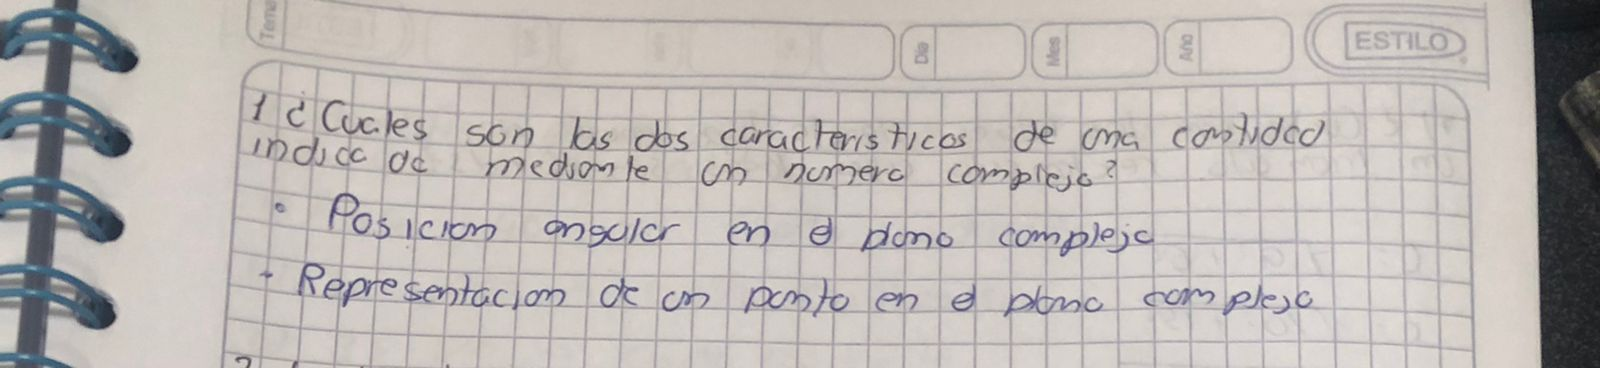 Tema
Dia
Mes
Año
ESTILO
1 ¿Cuales son las dos caracteristicas de una cantidad
indicada mediante un numero complejo?
• Posicion angular en el plano complejo
• Representacion de un punto en el plano complejo